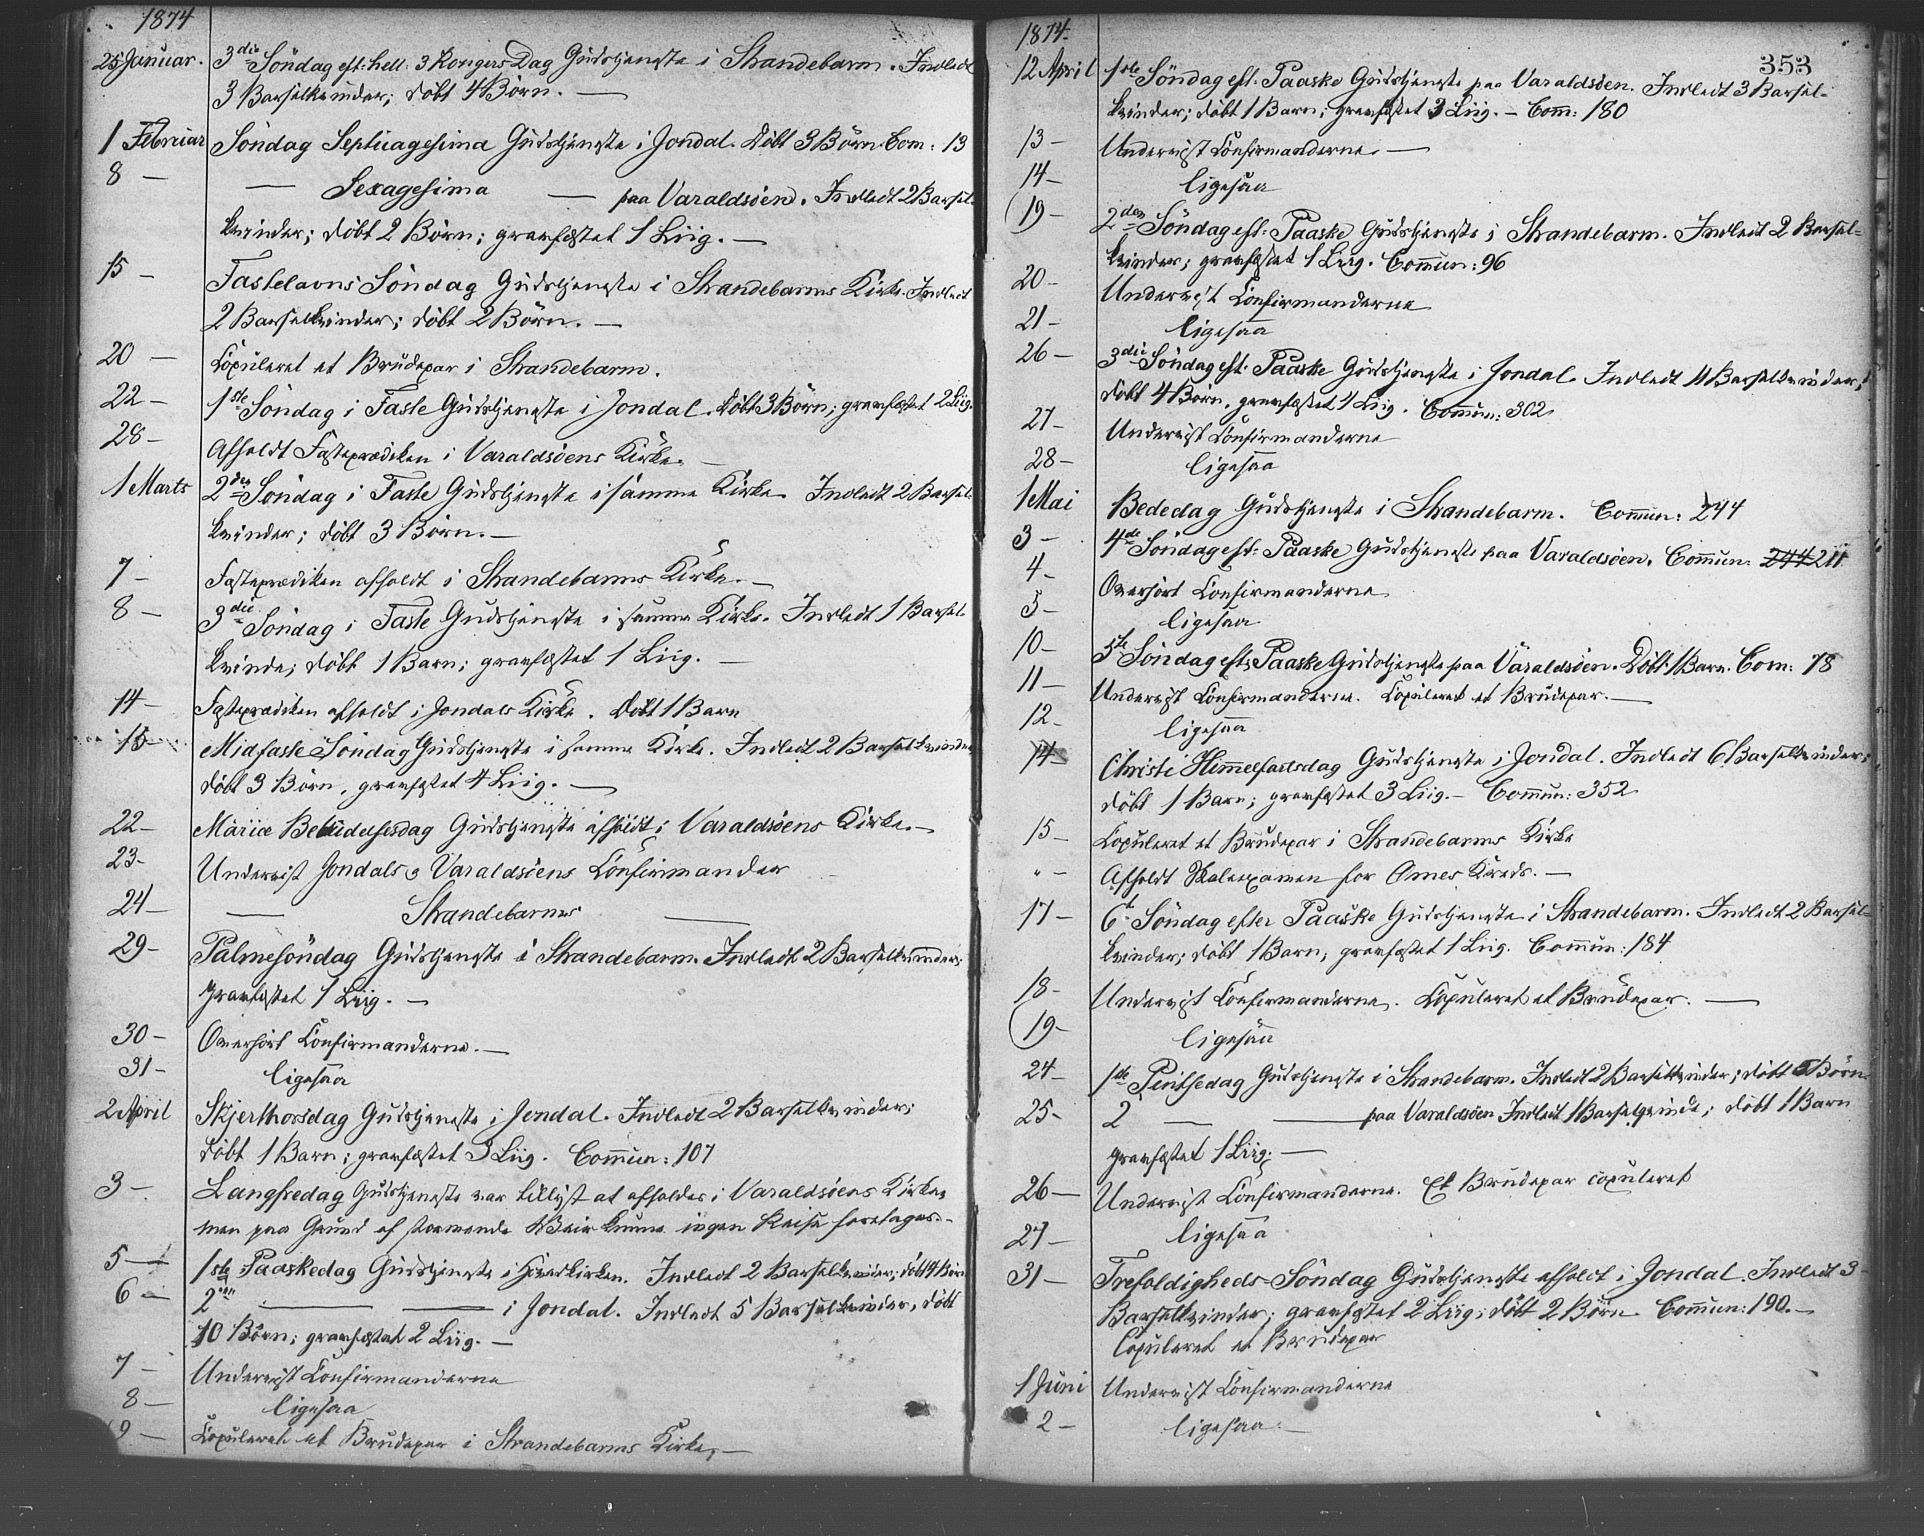 1874
25 Januar. 3die Söndag eft. hell. 3 Kongers Dag Gudstjeneste i Strandebarm. Indledt
3 Barselkvinder; döbt 4 Börn. —
1 Februar Söndag Septuagesima Gudstjeneste i Jondal. Döbt 3 Börn. Com: 13
8 — — Sexagesima — paa Varaldsöen. Indledt 2 Barsel-
kvinder; döbt 2 Börn; gravfæstet 1 Liig. —
15 — Fastelavns Söndag Gudstjeneste i Strandebarms Kirke. Indledt
2 Barselkvinder; döbt 2 Börn. —
20 — Copuleret et Brudepar i Strandebarm.
22 — 1ste Söndag i Faste Gudstjeneste i Jondal. Döbt 3 Börn; gravfæstet 2 Liig.
28 — Afholdt Fasteprædiken i Varaldsöens Kirke. —
1 Marts 2den Söndag i Faste Gudstjeneste i samme Kirke. Indledt 2 Barsel-
kvinder; döbt 3 Börn. —
7 — Fasteprædiken afholdt i Strandebarms Kirke. —
8 — 3die Söndag i Faste Gudstjeneste i samme Kirke. Indledt 1 Barsel-
kvinde; döbt 1 Barn; gravfæstet 1 Liig. —
14 — Fasteprædiken afholdt i Jondals Kirke. Döbt 1 Barn
15 — Midfaste Söndag Gudstjeneste i samme Kirke. Indledt 2 Barselkvinder
döbt 3 Börn, gravfæstet 4 Liig. —
22 — Mariæ Bebudelsesdag Gudstjeneste afholdt i Varaldsöens Kirke. —
23 — Underviist Jondals o Varaldsöens Confirmander
24 — — Strandebarms —
29 — Palmesöndag Gudstjeneste i Strandebarm. Indledt 2 Barselkvinder;
gravfæstet 1 Liig. —
30 — Overhört Confirmanderne. —
31 — ligesaa
2 April Skjerthorsdag Gudstjeneste i Jondal. Indledt 2 Barselkvinder;
döbt 1 Barn; gravfæstet 3 Liig. Commun: 107
3 — Langfredag Gudstjeneste var tillyst at afholdes i Varaldsöens Kirke,
men paa Grund af stormende Veir kunne ingen Reise foretages. —
5 — 1ste Paaskedag Gudstjeneste i Hovedkirken. Indledt 2 Barselkvinder; döbt 4 Börn
6 — 2den — — i Jondal. Indledt 5 Barselkvinder, döbt
10 Börn; gravfæstet 2 Liig. —
7 — Underviist Confirmanderne
8 — ligesaa
9 — Copuleret et Brudepar i Strandebarms Kirke, —
1874.
353
12 April 1ste Söndag eft. Paaske Gudstjeneste paa Varaldsöen. Indledt 3 Barsel-
kvinder; döbt 1 Barn; gravfæstet 3 Liig. — Comm: 180
13 — Underviist Confirmanderne. —
14 — ligesaa
(19 — 2den Söndag eft: Paaske Gudstjeneste i Strandebarm. Indledt 2 Barsel-
kvinder; gravfæstet 1 Liig. Commun: 96
20 — Underviist Confirmanderne
21 — ligesaa
26 — 3die Söndag eft. Paaske Gudstjeneste i Jondal. Indledt 11 Barselkvinder;
döbt 4 Börn, gravfæstet 1 Liig. Commun: 302
27 — Underviist Confirmanderne
28 — ligesaa
1 Mai Bededag Gudstjeneste i Strandebarm. Commun: 244
3 — 4de Söndag eft: Paaske Gudstjeneste paa Varaldsöen. Commun: 244 211
4 — Overhört Confirmanderne
5 — ligesaa
10 — 5te Söndag eft: Paaske Gudstjeneste paa Varaldsöen. Döbt 1 Barn. Com: 78
11 — Underviist Confirmanderne. Copuleret et Brudepar. —
12 — ligesaa
14 Christi Himmelfartsdag Gudstjeneste i Jondal. Indledt 6 Barselkvinder;
döbt 1 Barn; gravfæstet 3 Liig. — Commun: 352
15 — Copuleret et Brudepar i Strandebarms Kirke
" — Afholdt Skoleexamen for Omes Kreds. —
17 — 6te Söndag efter Paaske Gudstjeneste i Strandebarm. Indledt 2 Barsel-
kvinder; döbt 1 Barn, gravfæstet 1 Liig. Commun: 184
18 — Underviist Confirmanderne. Copuleret et Brudepar. —
(19 — ligesaa
24 — 1ste Pintsedag Gudstjeneste i Strandebarm. Indledt 2 Barselkvinder; döbt 5 Börn
25 — 2 — — paa Varaldsöen Indledt 1 Barselqvinde; döbt 1 Barn
gravfæstet 1 Liig. —
26 — Underviist Confirmanderne. Et Brudepar copuleret
27 — ligesaa
31 — Trefoldigheds-Söndag Gudstjeneste afholdt i Jondal. Indledt 3
Barselkvinder; gravfæstet 2 Liig; döbt 2 Börn. Commun: 190. —
Copuleret et Brudepar
1 Juni Underviist Confirmanderne
2 — ligesaa. —